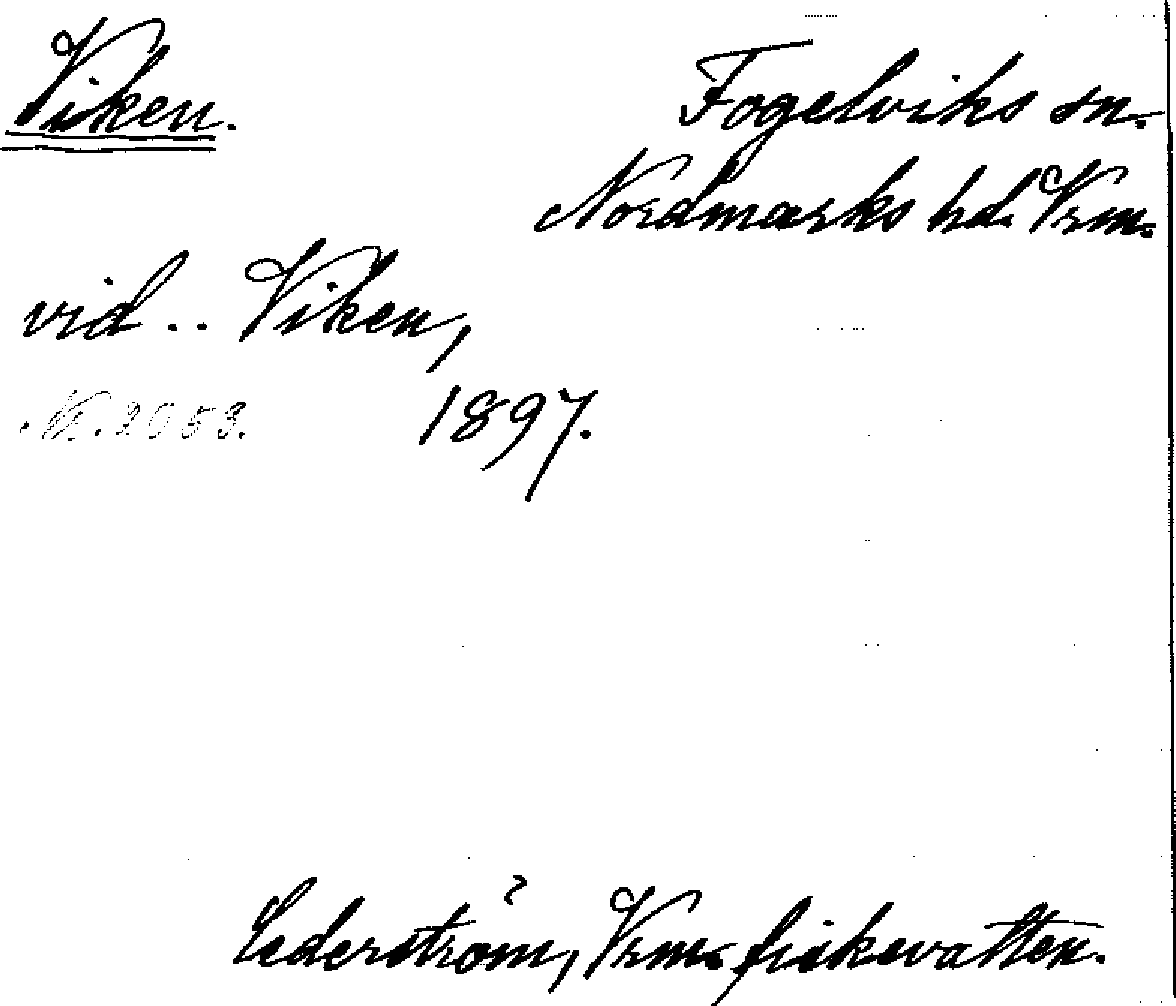 Viken.
Fogelviks sn.
Nordmarks hd. Vrm.
vid .. Viken,
Nr. 2053.
1897.
Cederström, Vrms fiskevatten.